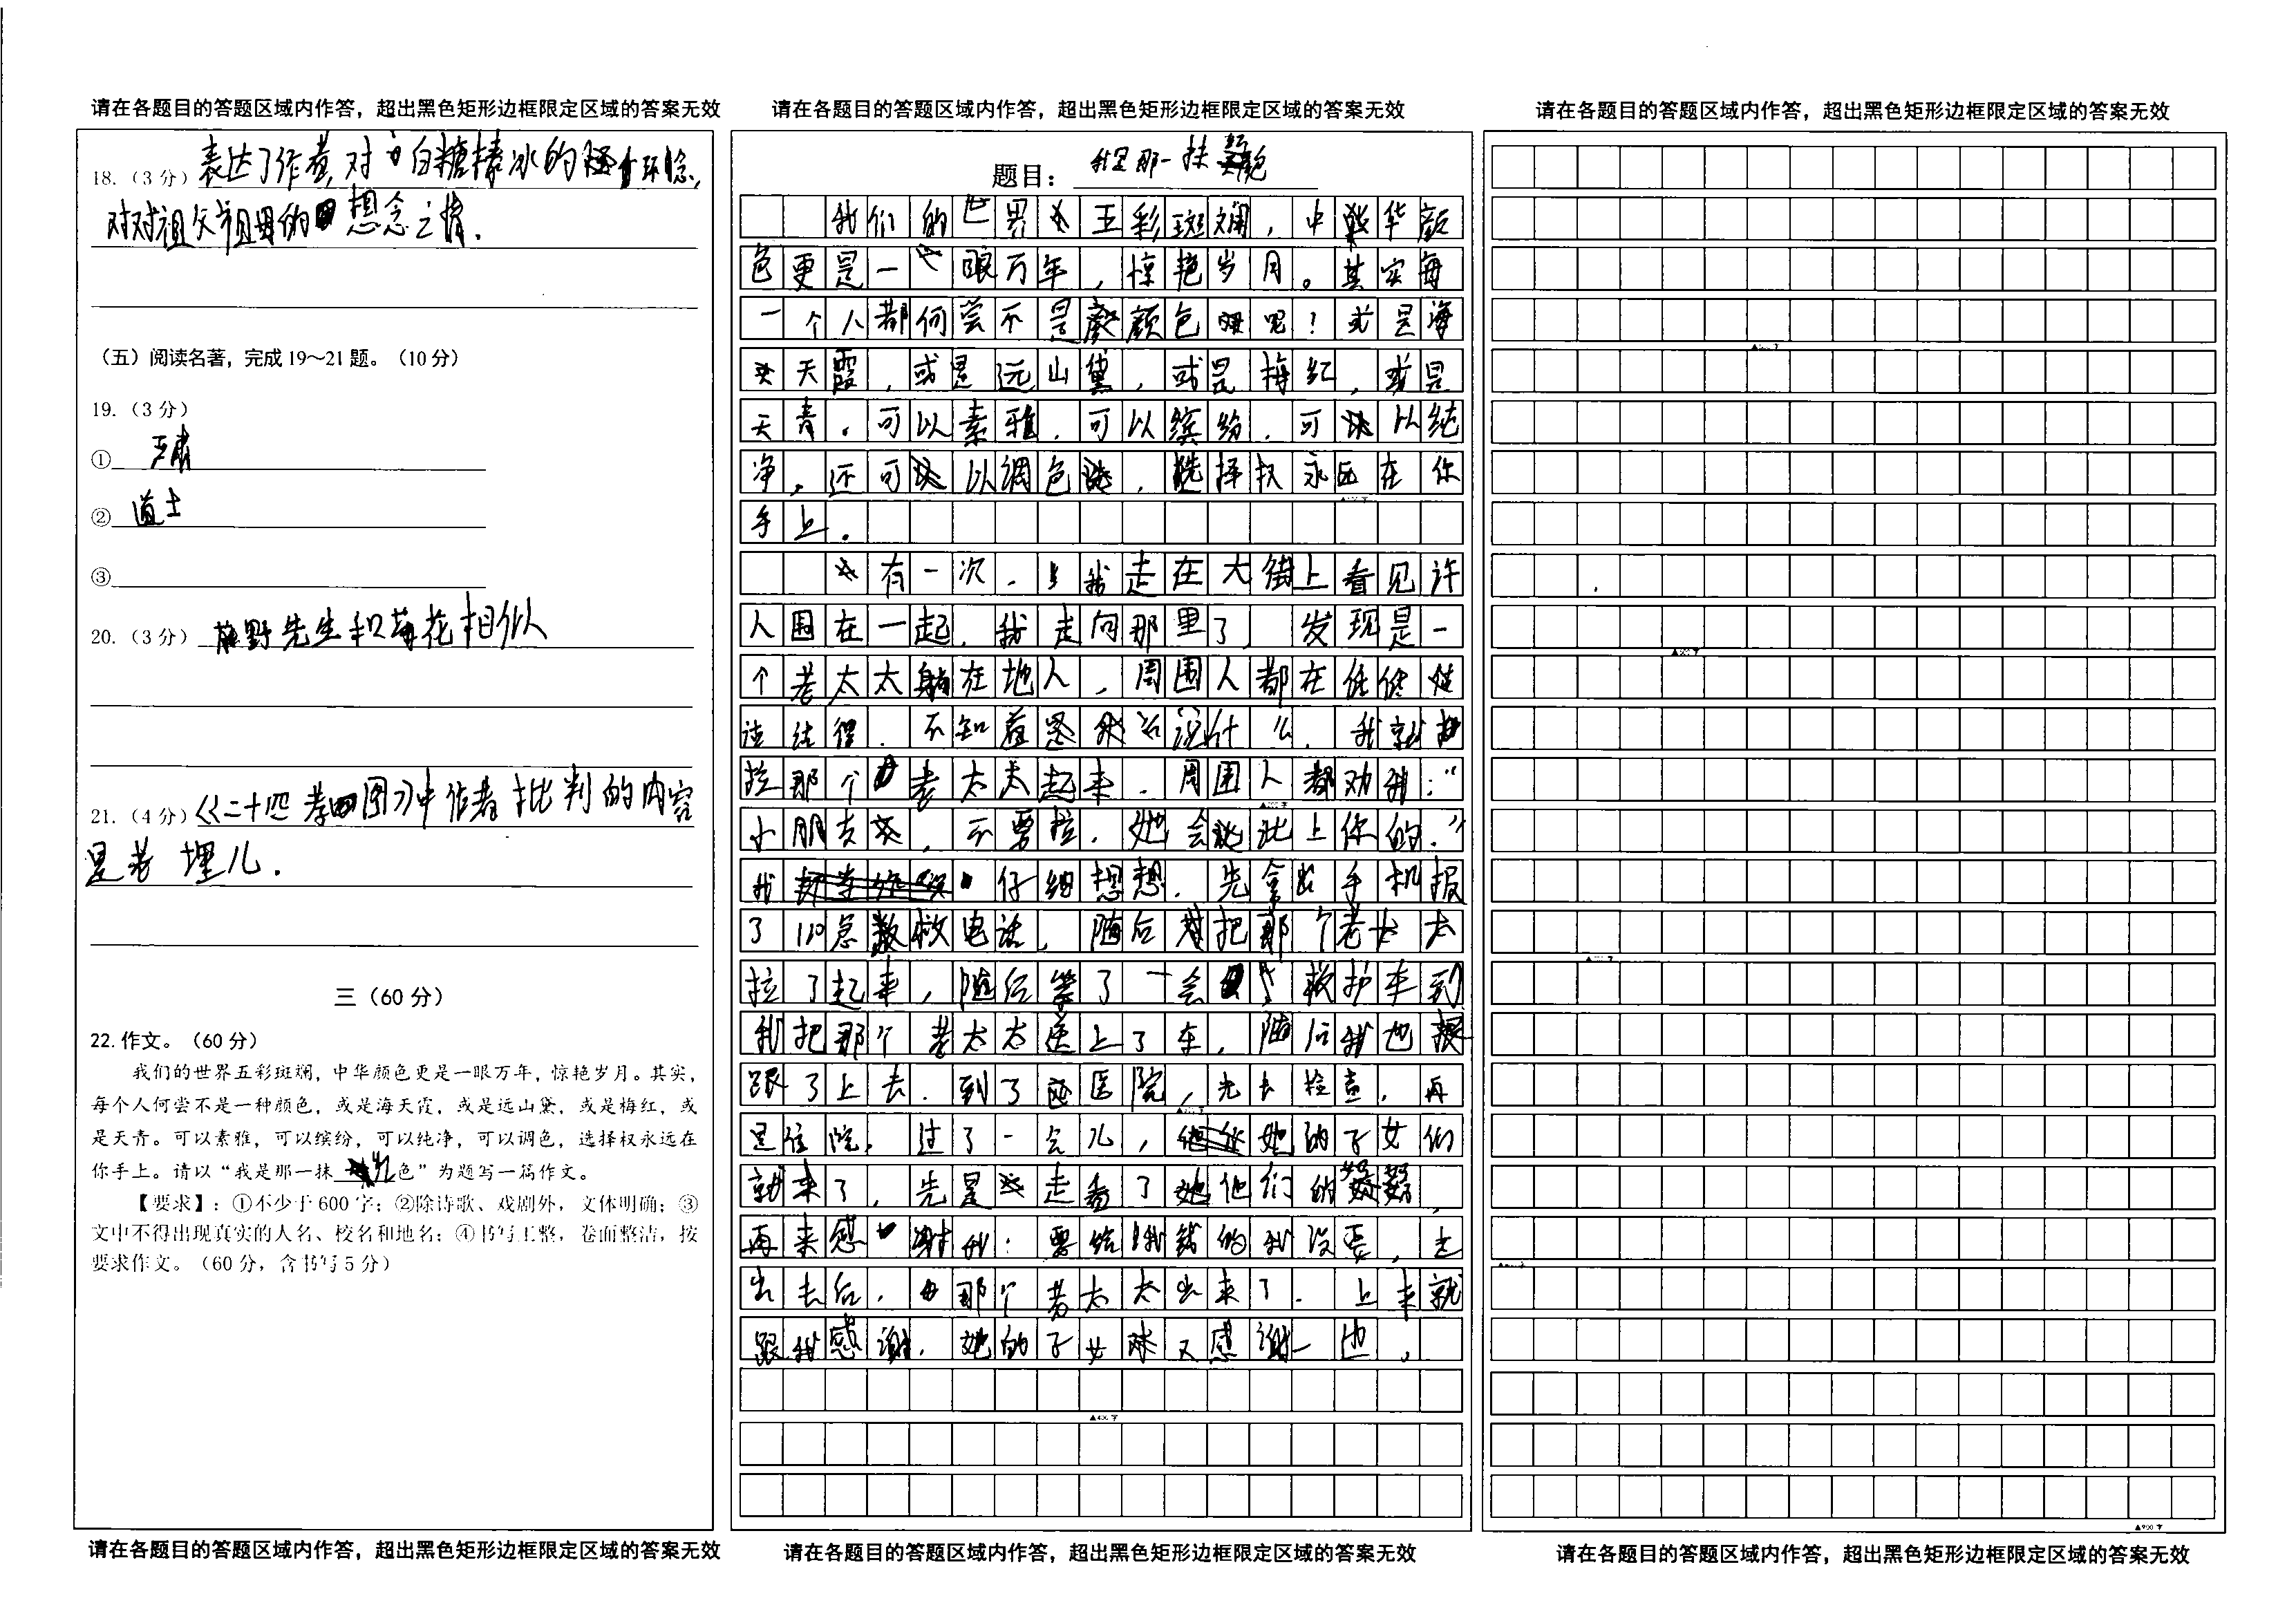 请在各题目的答题区域内作答，超出黑色矩形边框限定区域的答案无效
18.（3分）表达了作者对白糖棒冰的怀念,
对对祖父祖母的想念之情.
（五）阅读名著，完成19～21题。（10分）
19.（3分）
① 严肃
② 道士
③
20.（3分）藤野先生和菊花相似
21.（4分）《二十四孝图》中作者批判的内容
是老 埋儿.
三（60分）
22.作文。（60分）
我们的世界五彩斑斓，中华颜色更是一眼万年，惊艳岁月。其实，
每个人何尝不是一种颜色，或是海天霞，或是远山黛，或是梅红，或
是天青。可以素雅，可以缤纷，可以纯净，可以调色，选择权永远在
你手上。请以“我是那一抹 红 色”为题写一篇作文。
【要求】：①不少于600字；②除诗歌、戏剧外，文体明确；③
文中不得出现真实的人名、校名和地名；④书写工整，卷面整洁，按
要求作文。（60分，含书写5分）
请在各题目的答题区域内作答，超出黑色矩形边框限定区域的答案无效
请在各题目的答题区域内作答，超出黑色矩形边框限定区域的答案无效
题目：我是那一抹色
我们的世界五彩斑斓，中华颜
色更是一眼万年，惊艳岁月。其实每
一个人都何尝不是颜色呢！或是海
天霞，或是远山黛，或是梅红，或是
天青.可以素雅.可以缤纷.可以纯
净.还可以调色，选择权永远在你
手上.
有一次.我走在大街上看见许
人围在一起.我走向那里了，发现是一
个老太太躺在地人，周围人都在
不知着说什么.我就
拉那个老太太起来.周围人都劝我:“
小朋友，不要拉.她会讹上你的.”
我仔细想想.先拿出手机报
了120急救电话，随后把那个老太太
拉了起来，随后等了一会救护车到
我把那个老太太送上了车，随后我也
跟了上去.到了医院，先去检查，再
是住院.过了一会儿，她的子女们
就来了，先是走看了他们的
再来感谢我:要给我钱的我没要，走
出去后，那个老太太出来了.上来就
跟我感谢.她的子女又感谢一边，
▲400字
请在各题目的答题区域内作答，超出黑色矩形边框限定区域的答案无效
请在各题目的答题区域内作答，超出黑色矩形边框限定区域的答案无效
▲900字
请在各题目的答题区域内作答，超出黑色矩形边框限定区域的答案无效